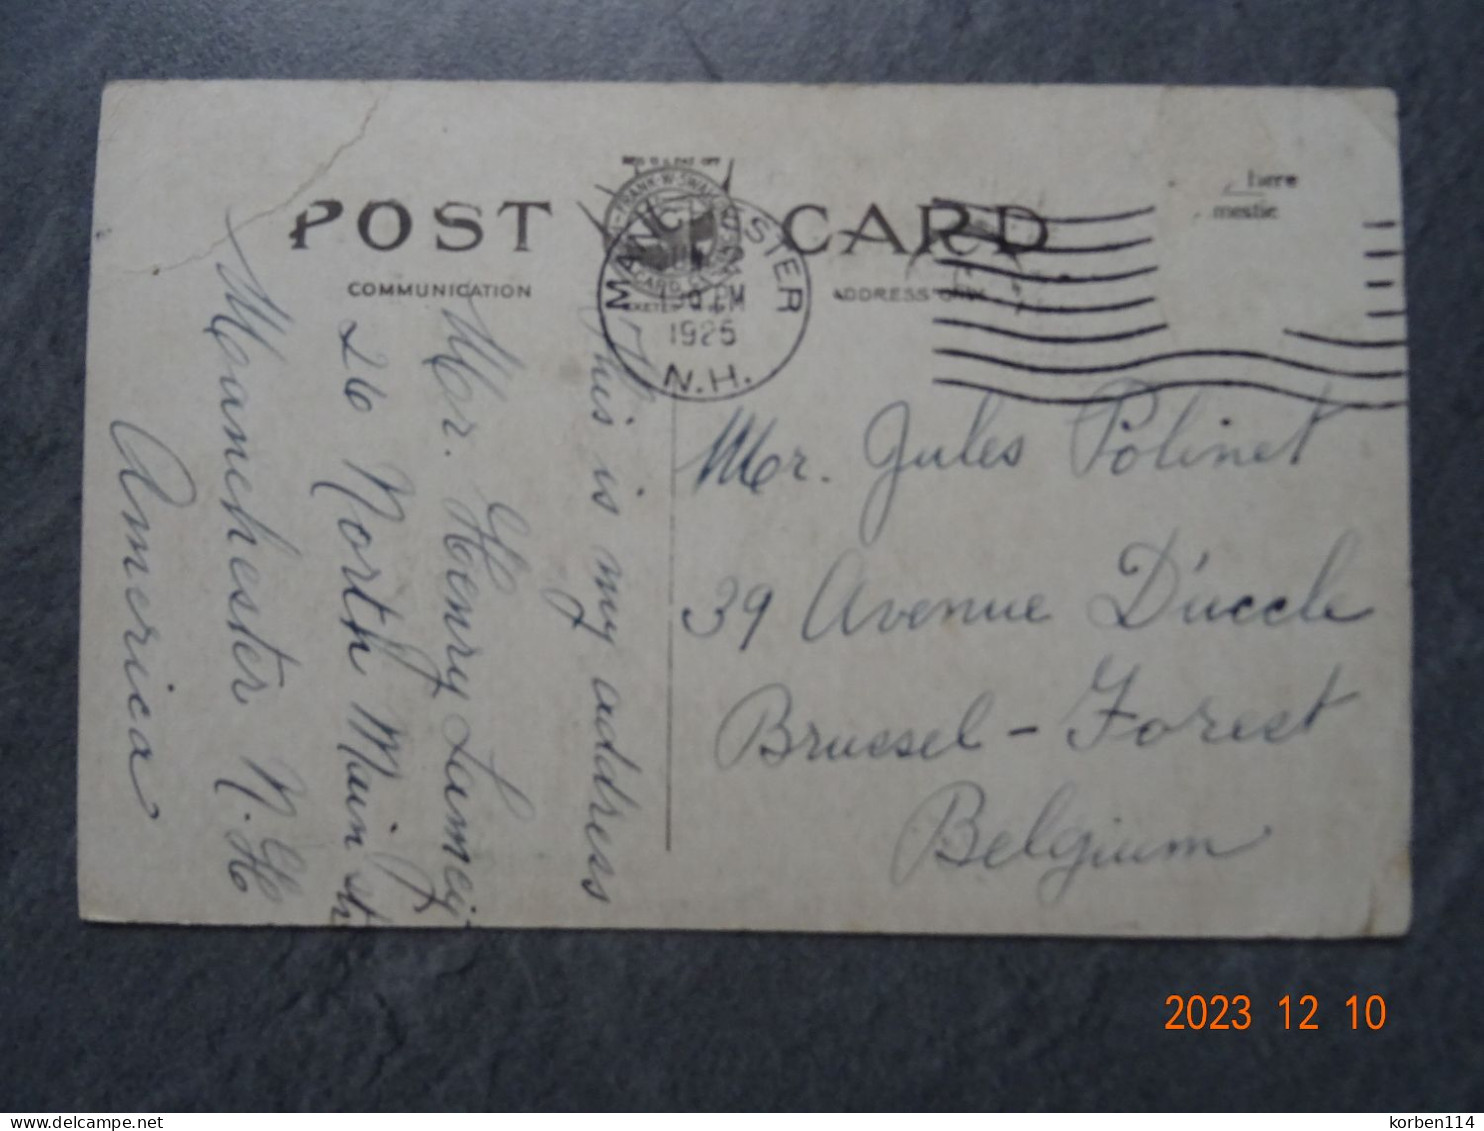 POST CARD
COMMUNICATION
ADDRESS ONLY
here
mestic
FRANK W. SWA
CARD
EXETER
MANCHESTER
PM
1925
N.H.
This is my address
Mr. Henry Lamey
26 North Main St
Manchester N.H
America
Mr. Jules Polinet
39 Avenue D'uccle
Brussel - Forest
Belgium
2023 12 10
delcampe.net
korben114